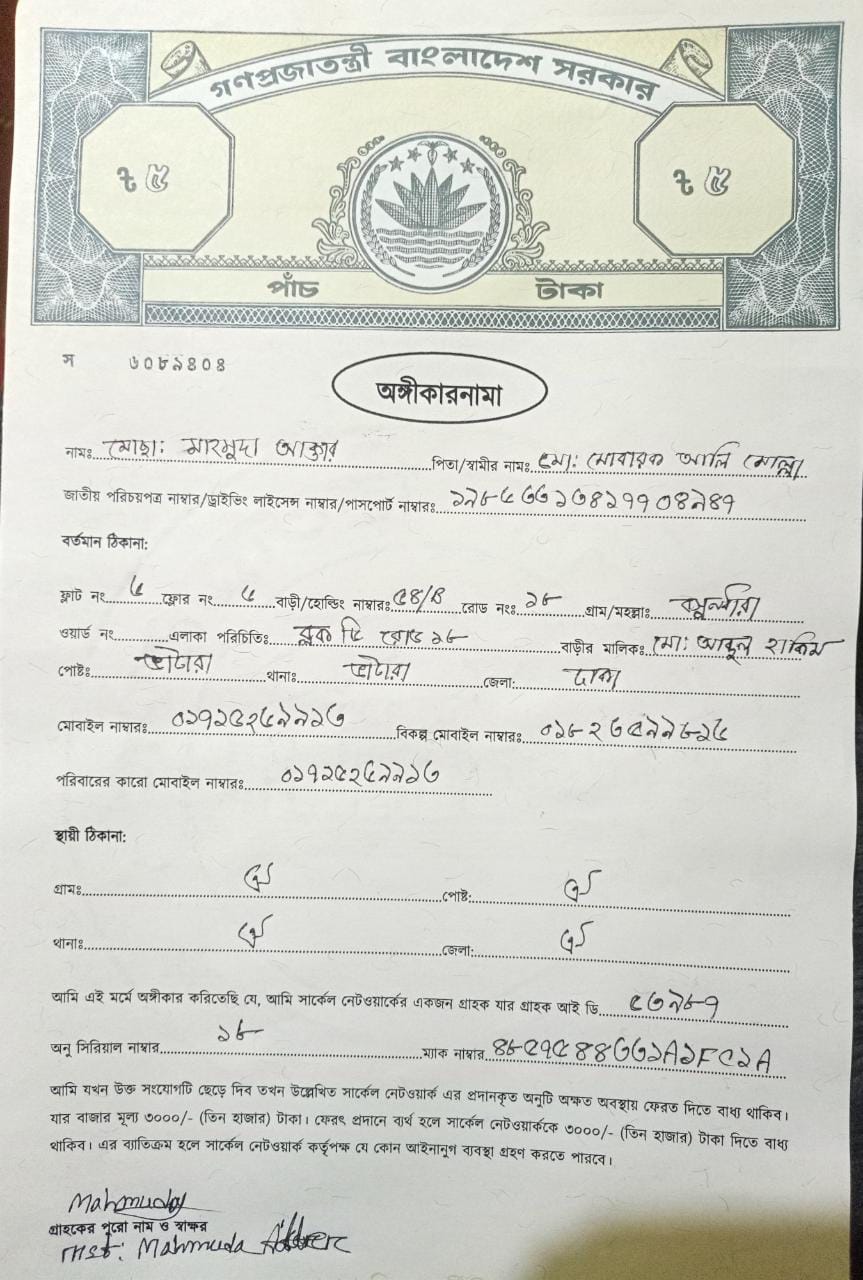 গণপ্রজাতন্ত্রী বাংলাদেশ সরকার
৳ ৫ ৳ ৫
পাঁচ টাকা
স ৬০৮৯৪০৪
অঙ্গীকারনামা
নামঃ মোছা: মাহমুদা আক্তার পিতা/স্বামীর নামঃ মো: মোবারক আলি মোল্লা
জাতীয় পরিচয়পত্র নাম্বার/ড্রাইভিং লাইসেন্স নাম্বার/পাসপোর্ট নাম্বারঃ
বর্তমান ঠিকানা:
ফ্লাট নং ফ্লোর নং বাড়ী/হোল্ডিং নাম্বারঃ ৫৪/B রোড নংঃ ১৮ গ্রাম/মহল্লাঃ বসুন্ধরা
ওয়ার্ড নং এলাকা পরিচিতিঃ ব্লক ডি রোড ১৮ বাড়ীর মালিকঃ মো: আব্দুল হাকিম
পোষ্টঃ ভাটারা থানাঃ ভাটারা জেলা: ঢাকা
মোবাইল নাম্বারঃ ০১৭১৫২৫৯৯১৩ বিকল্প মোবাইল নাম্বারঃ
পরিবারের কারো মোবাইল নাম্বারঃ ০১৭১৫২৫৯৯১৩
স্থায়ী ঠিকানা:
গ্রামঃ ঐ পোষ্ট: ঐ
থানাঃ ঐ জেলা: ঐ
আমি এই মর্মে অঙ্গীকার করিতেছি যে, আমি সার্কেল নেটওয়ার্কের একজন গ্রাহক যার গ্রাহক আই ডি ৫৩৯৮৭
অনু সিরিয়াল নাম্বার ১৮ ম্যাক নাম্বার ৪৮৫৭৫৪৪৩৩১A১F৫১A
আমি যখন উক্ত সংযোগটি ছেড়ে দিব তখন উল্লেখিত সার্কেল নেটওয়ার্ক এর প্রদানকৃত অনুটি অক্ষত অবস্থায় ফেরত দিতে বাধ্য থাকিব।
যার বাজার মূল্য ৩০০০/- (তিন হাজার) টাকা। ফেরৎ প্রদানে ব্যর্থ হলে সার্কেল নেটওয়ার্ককে ৩০০০/- (তিন হাজার) টাকা দিতে বাধ্য
থাকিব। এর ব্যতিক্রম হলে সার্কেল নেটওয়ার্ক কর্তৃপক্ষ যে কোন আইনানুগ ব্যবস্থা গ্রহণ করতে পারবে।
Mahmuda
গ্রাহকের পুরো নাম ও স্বাক্ষর
Mst: Mahmuda Akter